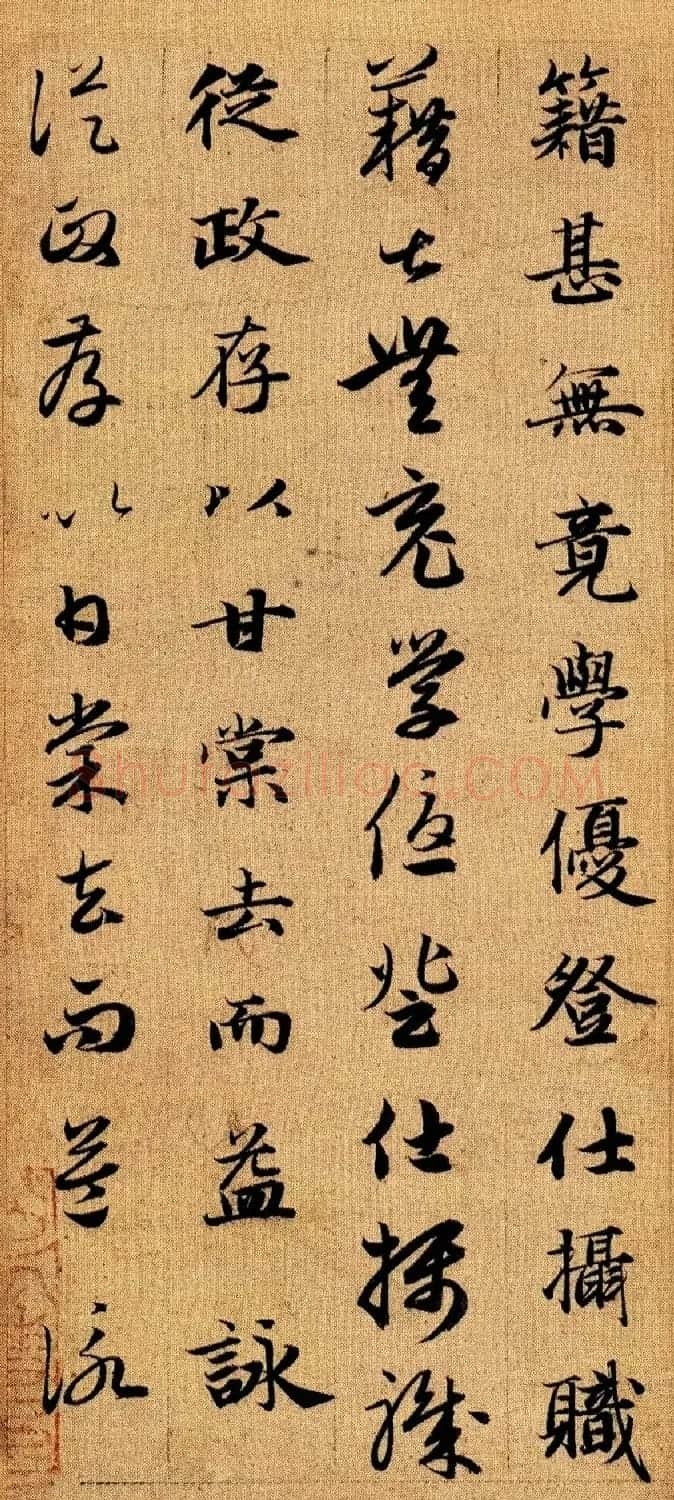 籍甚無竟學優登仕攝職
籍甚無竟學優登仕攝職
從政存以甘棠去而益詠
從政存以甘棠去而益詠